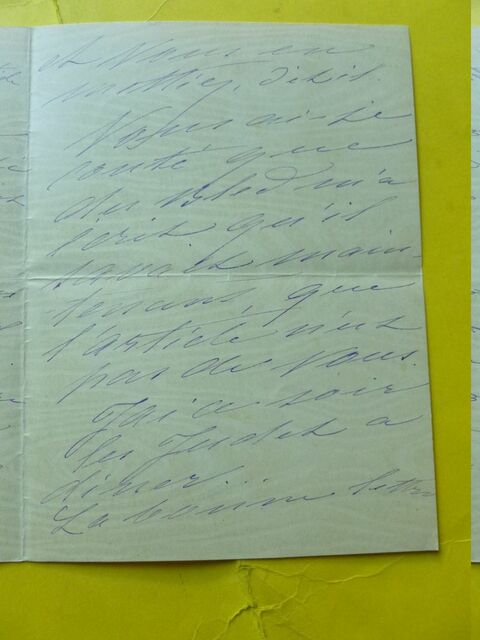 et vous en
mottiez, dit il.
Vous ai-je
conté que
du m'a
écrit qu'il
savait main-
tenant, que
l'article n'est
pas de vous.
J'ai ce soir
les à
dîner.
La lettre